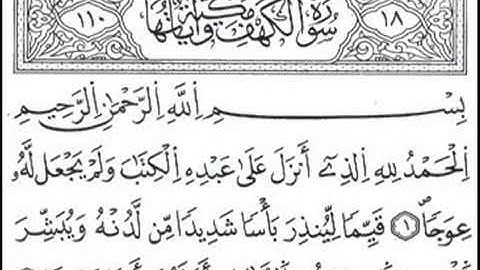 ١٨ سُورَةُ الْكَهْفِ مَكِّيَّةٌ وَآيَاتُهَا ١١٠
بِسْمِ اِ۬للَّهِ اِ۬لرَّحْمَٰنِ اِ۬لرَّحِيمِ
اِ۬لْحَمْدُ لِلهِ اِ۬لذِےٓ أَنزَلَ عَلَىٰ عَبْدِهِ اِ۬لْكِتَٰبَ وَلَمْ يَجْعَل لَّهُۥ
عِوَجاٗ ١ قَيِّماٗ لِّيُنذِرَ بَأْساٗ شَدِيداٗ مِّن لَّدُنْهُ وَيُبَشِّرَ